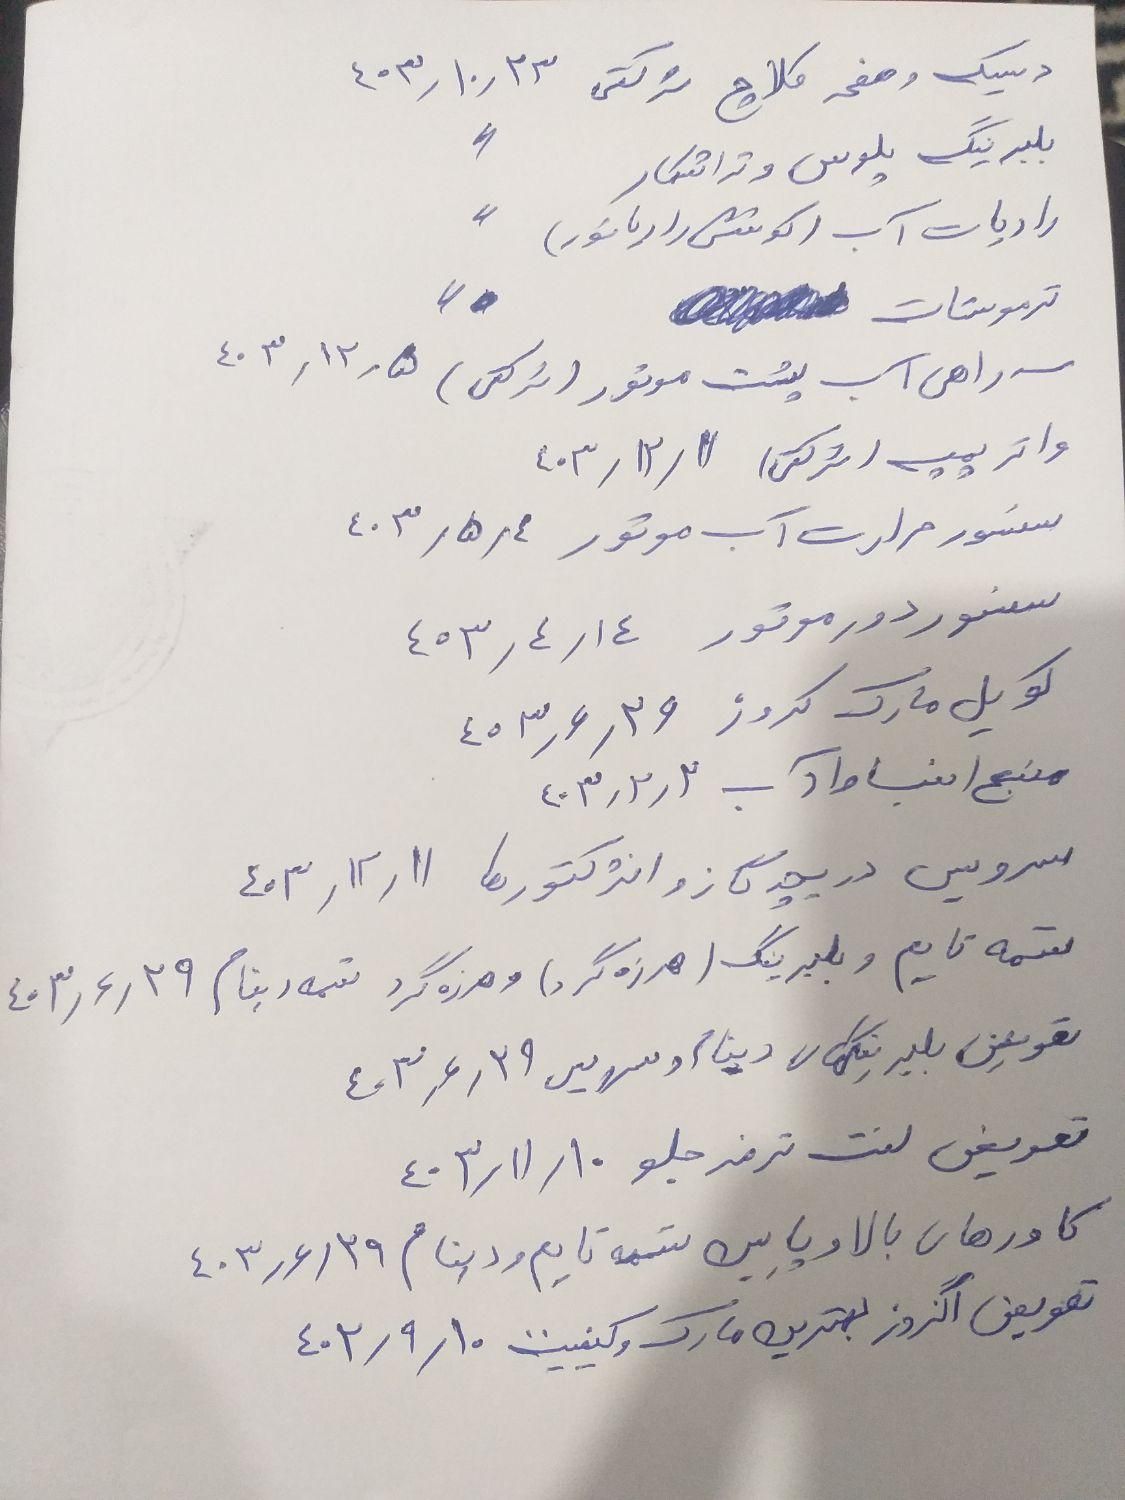 دیسک و صفحه کلاچ شرکتی ۴۰۳٫۱۰٫۲۳
بلبرینگ پلوس و تراشکار "
رادیات آب (کوشش رادیاتور) "
ترموستات "
سه راهی آب پشت موتور (شرکتی) ۴۰۳٫۱۲٫۵
واتر پمپ (شرکتی) ۴۰۳٫۱۲٫۱۱
سنسور حرارت آب موتور ۴۰۳٫۵٫۴
سنسور دور موتور ۴۰۳٫۴٫۱۴
کویل مارک کروز ۴۰۳٫۶٫۲۶
منبع انبساط آب ۴۰۳٫۲٫۲
سرویس دریچه گاز و انژکتورها ۴۰۳٫۱۲٫۱۱
تسمه تایم و بلبرینگ (هرزه گرد) و هرزه گرد تسمه دینام ۴۰۳٫۶٫۲۹
تعویض بلبرینگهای دینام و سرویس ۴۰۳٫۶٫۲۹
تعویض لنت ترمز جلو ۴۰۳٫۱۱٫۱۰
کاورهای بالا و پایین تسمه تایم و دینام ۴۰۳٫۶٫۲۹
تعویض اگزوز بهترین مارک و کیفیت ۴۰۲٫۹٫۱۰